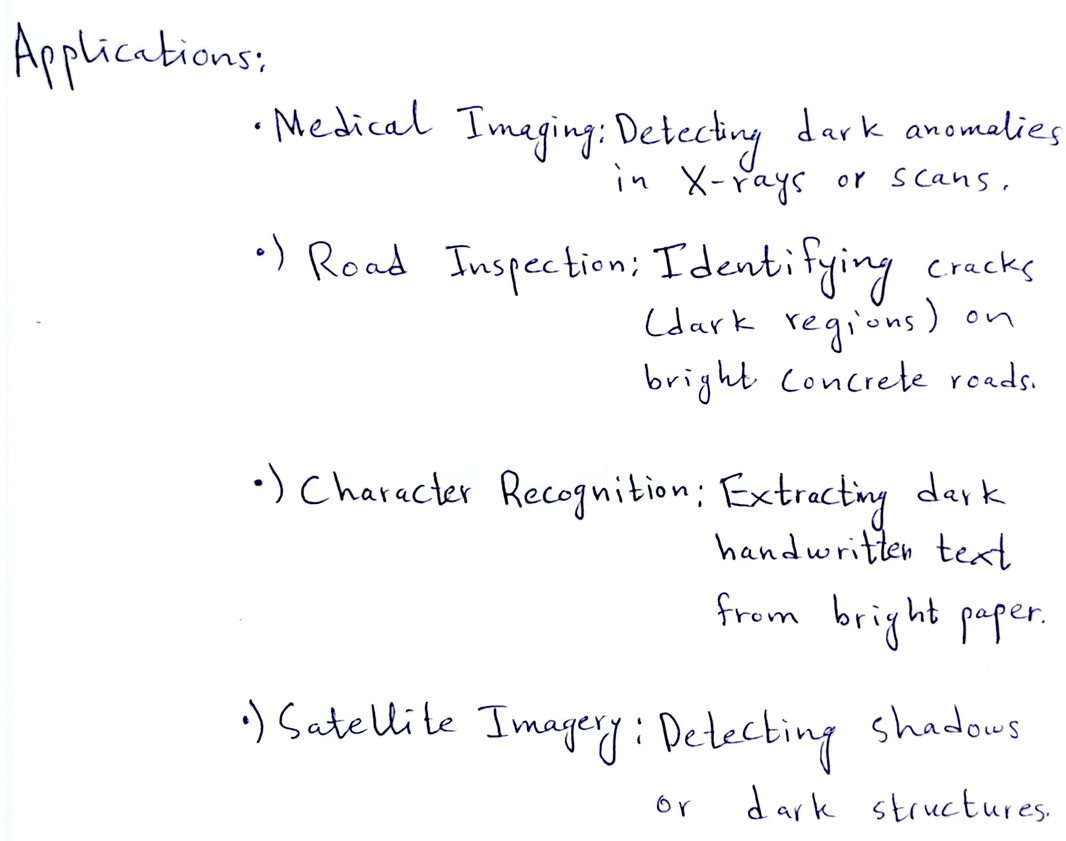 Applications:
• Medical Imaging: Detecting dark anomalies
in X-rays or scans.
•) Road Inspection: Identifying cracks
(dark regions) on
bright concrete roads.
•) Character Recognition: Extracting dark
handwritten text
from bright paper.
•) Satellite Imagery: Detecting shadows
or dark structures.